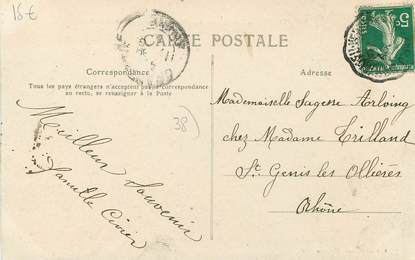 15€
CARTE POSTALE
Correspondance
Tous les pays étrangers n'acceptent pas la correspondance
au recto, se renseigner à la Poste
Meilleur Souvenir
Famille
38
Adresse
Mademoiselle Sagesse Arloing
chez Madame Trilland
St Genis les Ollières
Rhône
5c